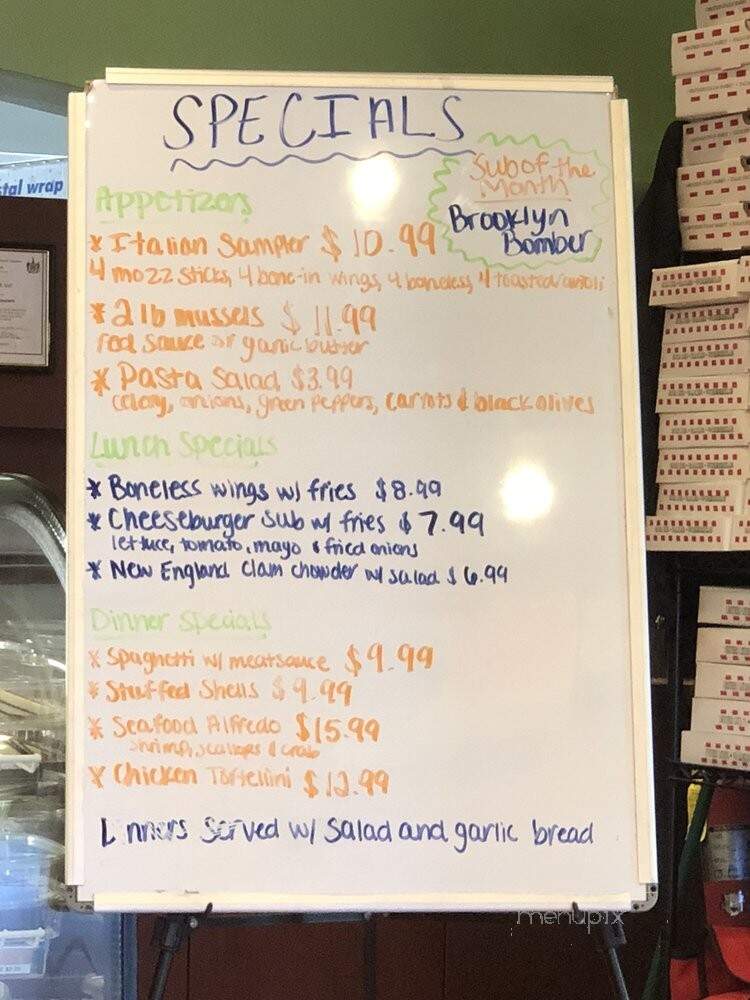 SPECIALS
Sub of the
Month
Brooklyn
Bomber
Appetizers
* Italian Sampler $10.99
4 mozz sticks, 4 bone-in wings, 4 boneless, 4 toasted ravioli
* 2 lb mussels $11.99
red sauce or garlic butter
* Pasta Salad $3.99
celery, onions, green peppers, carrots & black olives
Lunch Specials
* Boneless wings w/ fries $8.99
* Cheeseburger Sub w/ fries $7.99
lettuce, tomato, mayo & fried onions
* New England Clam Chowder w/ salad $6.99
Dinner Specials
* Spaghetti w/ meatsauce $9.99
* Stuffed Shells $9.99
* Seafood Alfredo $15.99
shrimp, scallops & crab
* Chicken Tortellini $12.99
Dinners Served w/ Salad and garlic bread
stal wrap
menupix